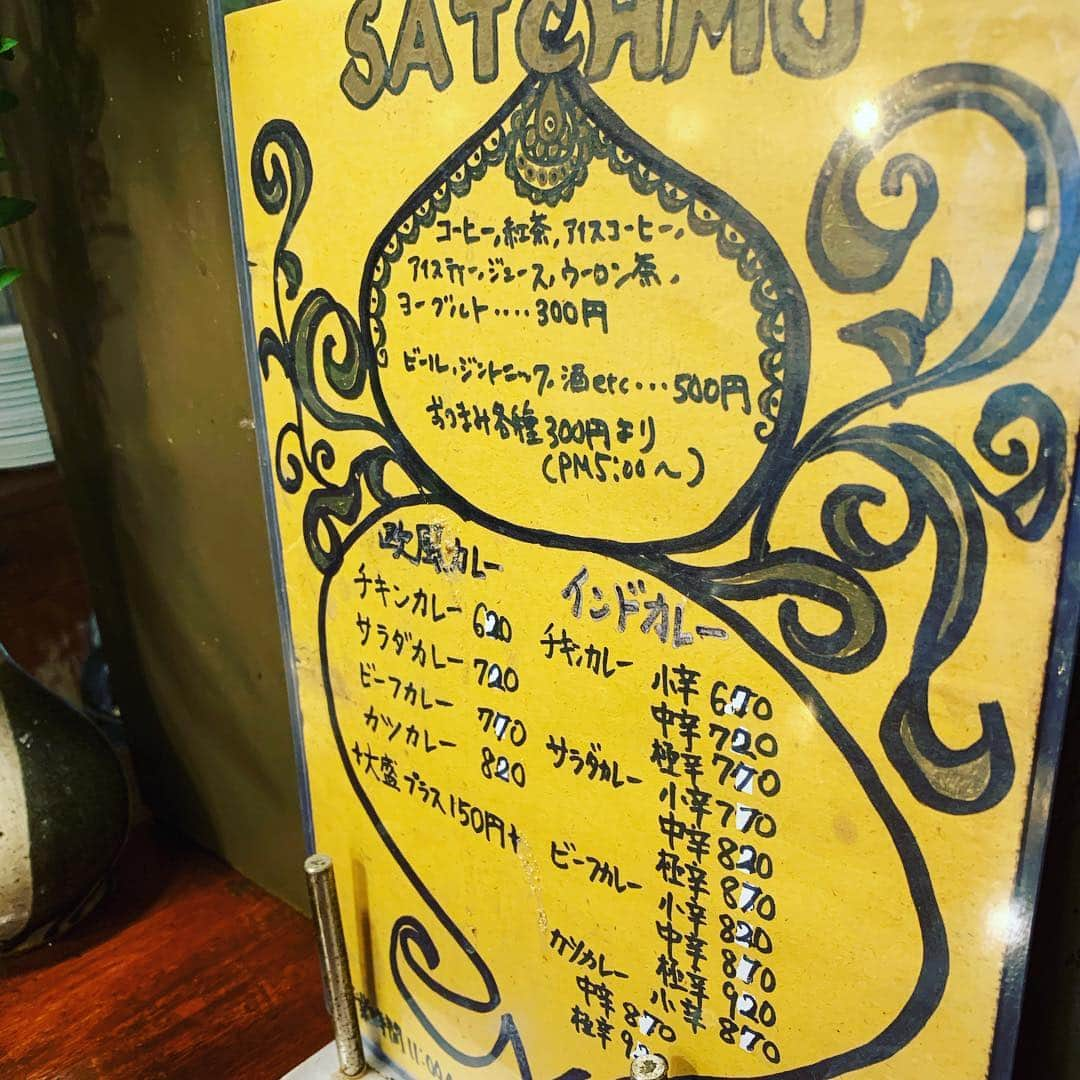 SATCHMO
コーヒー,紅茶,アイスコーヒー,
アイスティー,ジュース,ウーロン茶,
ヨーグルト‥‥300円
ビール,ジントニック,酒etc‥‥500円
おつまみ各種300円より
(PM5:00〜)
欧風カレー
チキンカレー 620
サラダカレー 720
ビーフカレー 770
カツカレー 820
+大盛プラス150円+
インドカレー
チキンカレー 小辛 670
中辛 720
極辛 770
サラダカレー 小辛 770
中辛 820
極辛 870
ビーフカレー 小辛 820
中辛 870
極辛 920
カツカレー 小辛 870
中辛 870
極辛
11:00